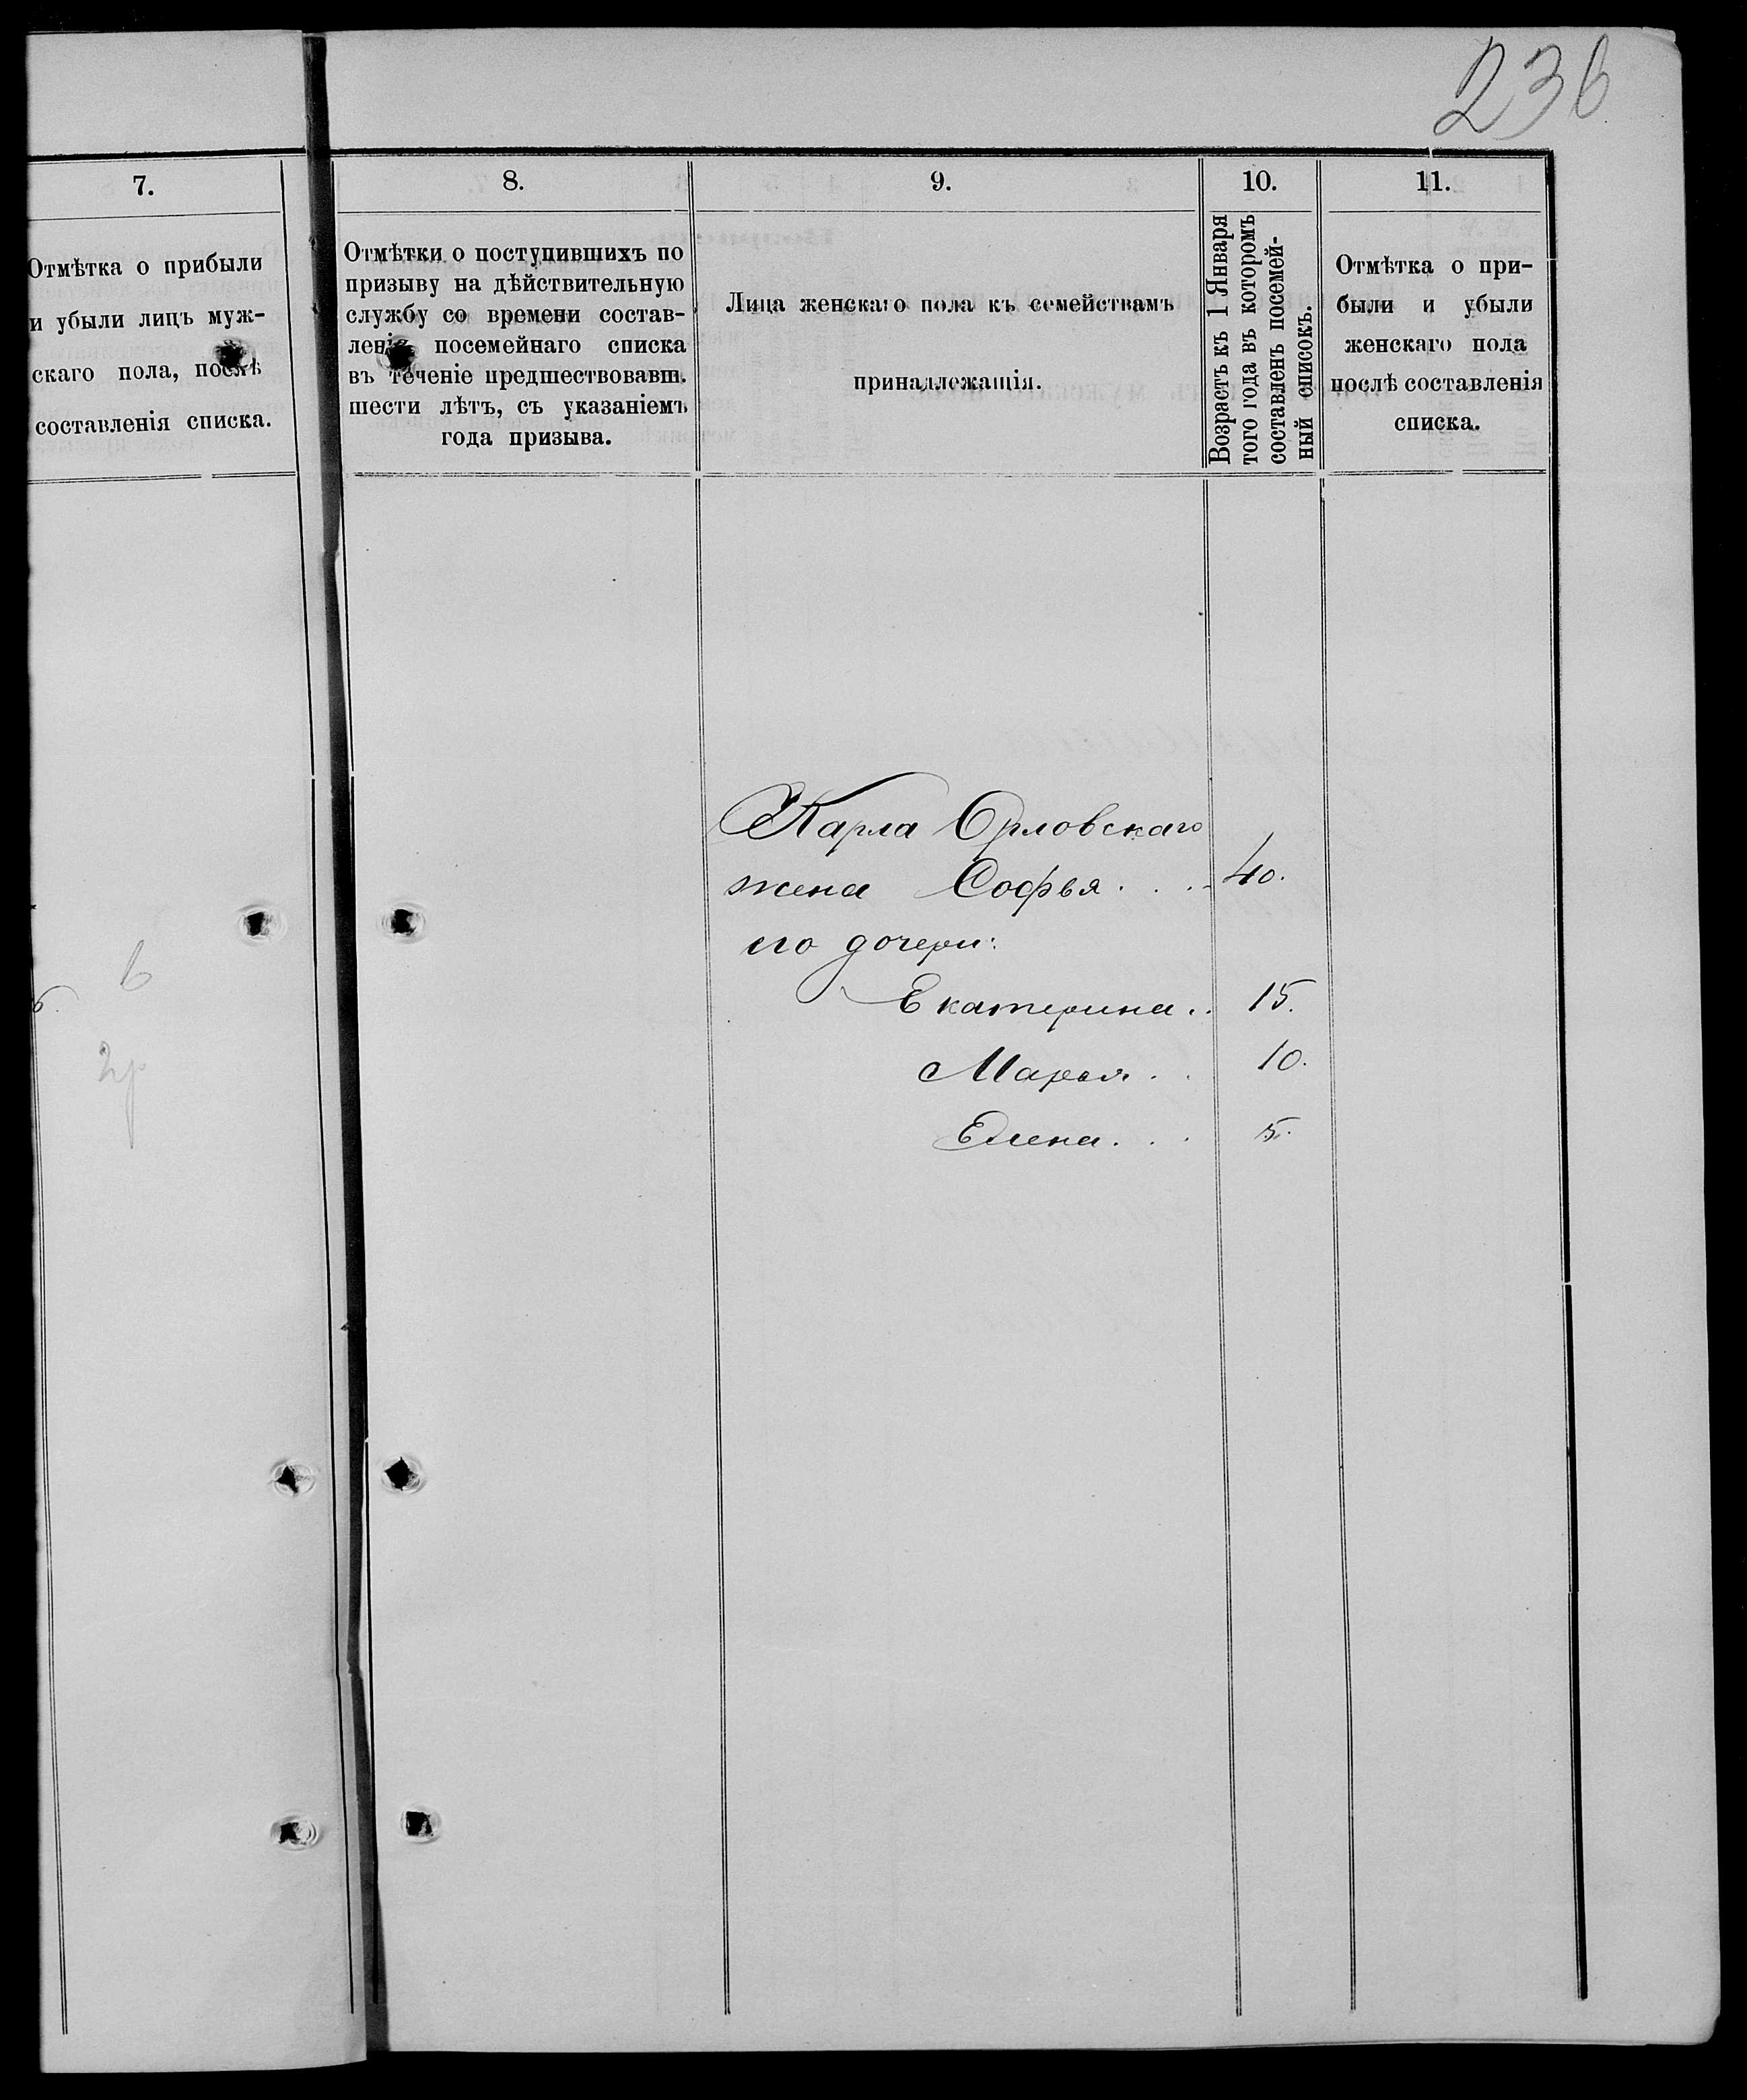 236
7.
Отмѣтка о прибыли
и убыли лицъ муж-
скаго пола, послѣ
составленія списка.
8.
Отмѣтки о поступившихъ по
призыву на дѣйствительную
службу со времени состав-
ленія посемейнаго списка
въ теченіе предшествовавш.
шести лѣтъ, съ указаніемъ
года призыва.
9.
Лица женскаго пола къ семействамъ
принадлежащія.
10.
Возрастъ къ 1 Января
того года въ которомъ
составленъ посемей-
ный списокъ.
11.
Отмѣтка о при-
были и убыли
женскаго пола
послѣ составленія
списка.
Карла Орловскаго
жена Софья . . . 40.
его дочери:
Екатерина . . 15.
Марья . . 10.
Елена . . . 5.